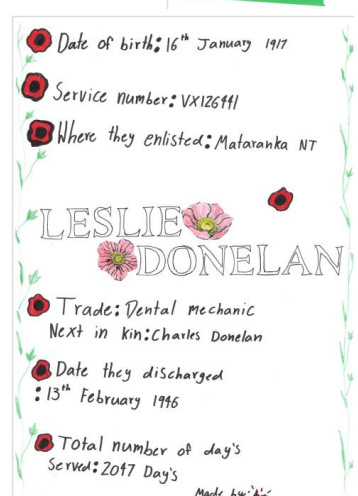 Date of birth: 16th January 1917
Service number: VX126441
Where they enlisted: Mataranka NT
LESLIE
DONELAN
Trade: Dental mechanic
Next in kin: Charles Donelan
Date they discharged
: 13th February 1946
Total number of day's
Served: 2047 Day's
Made by: